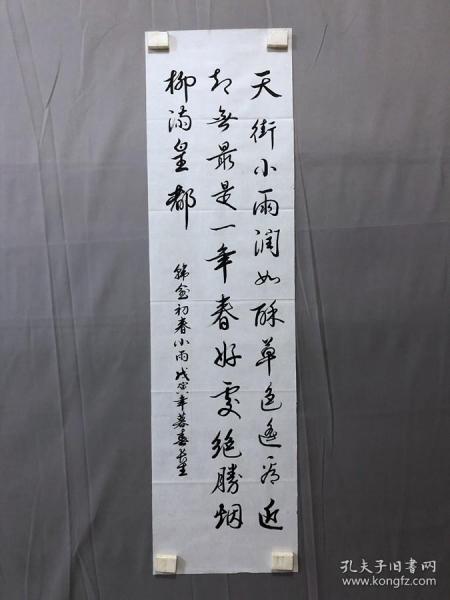 天街小雨润如酥草色遥看近
却無最是一年春好處絕勝烟
柳满皇都
韩愈初春小雨戊寅年暮春
孔夫子旧书网
www.kongfz.com